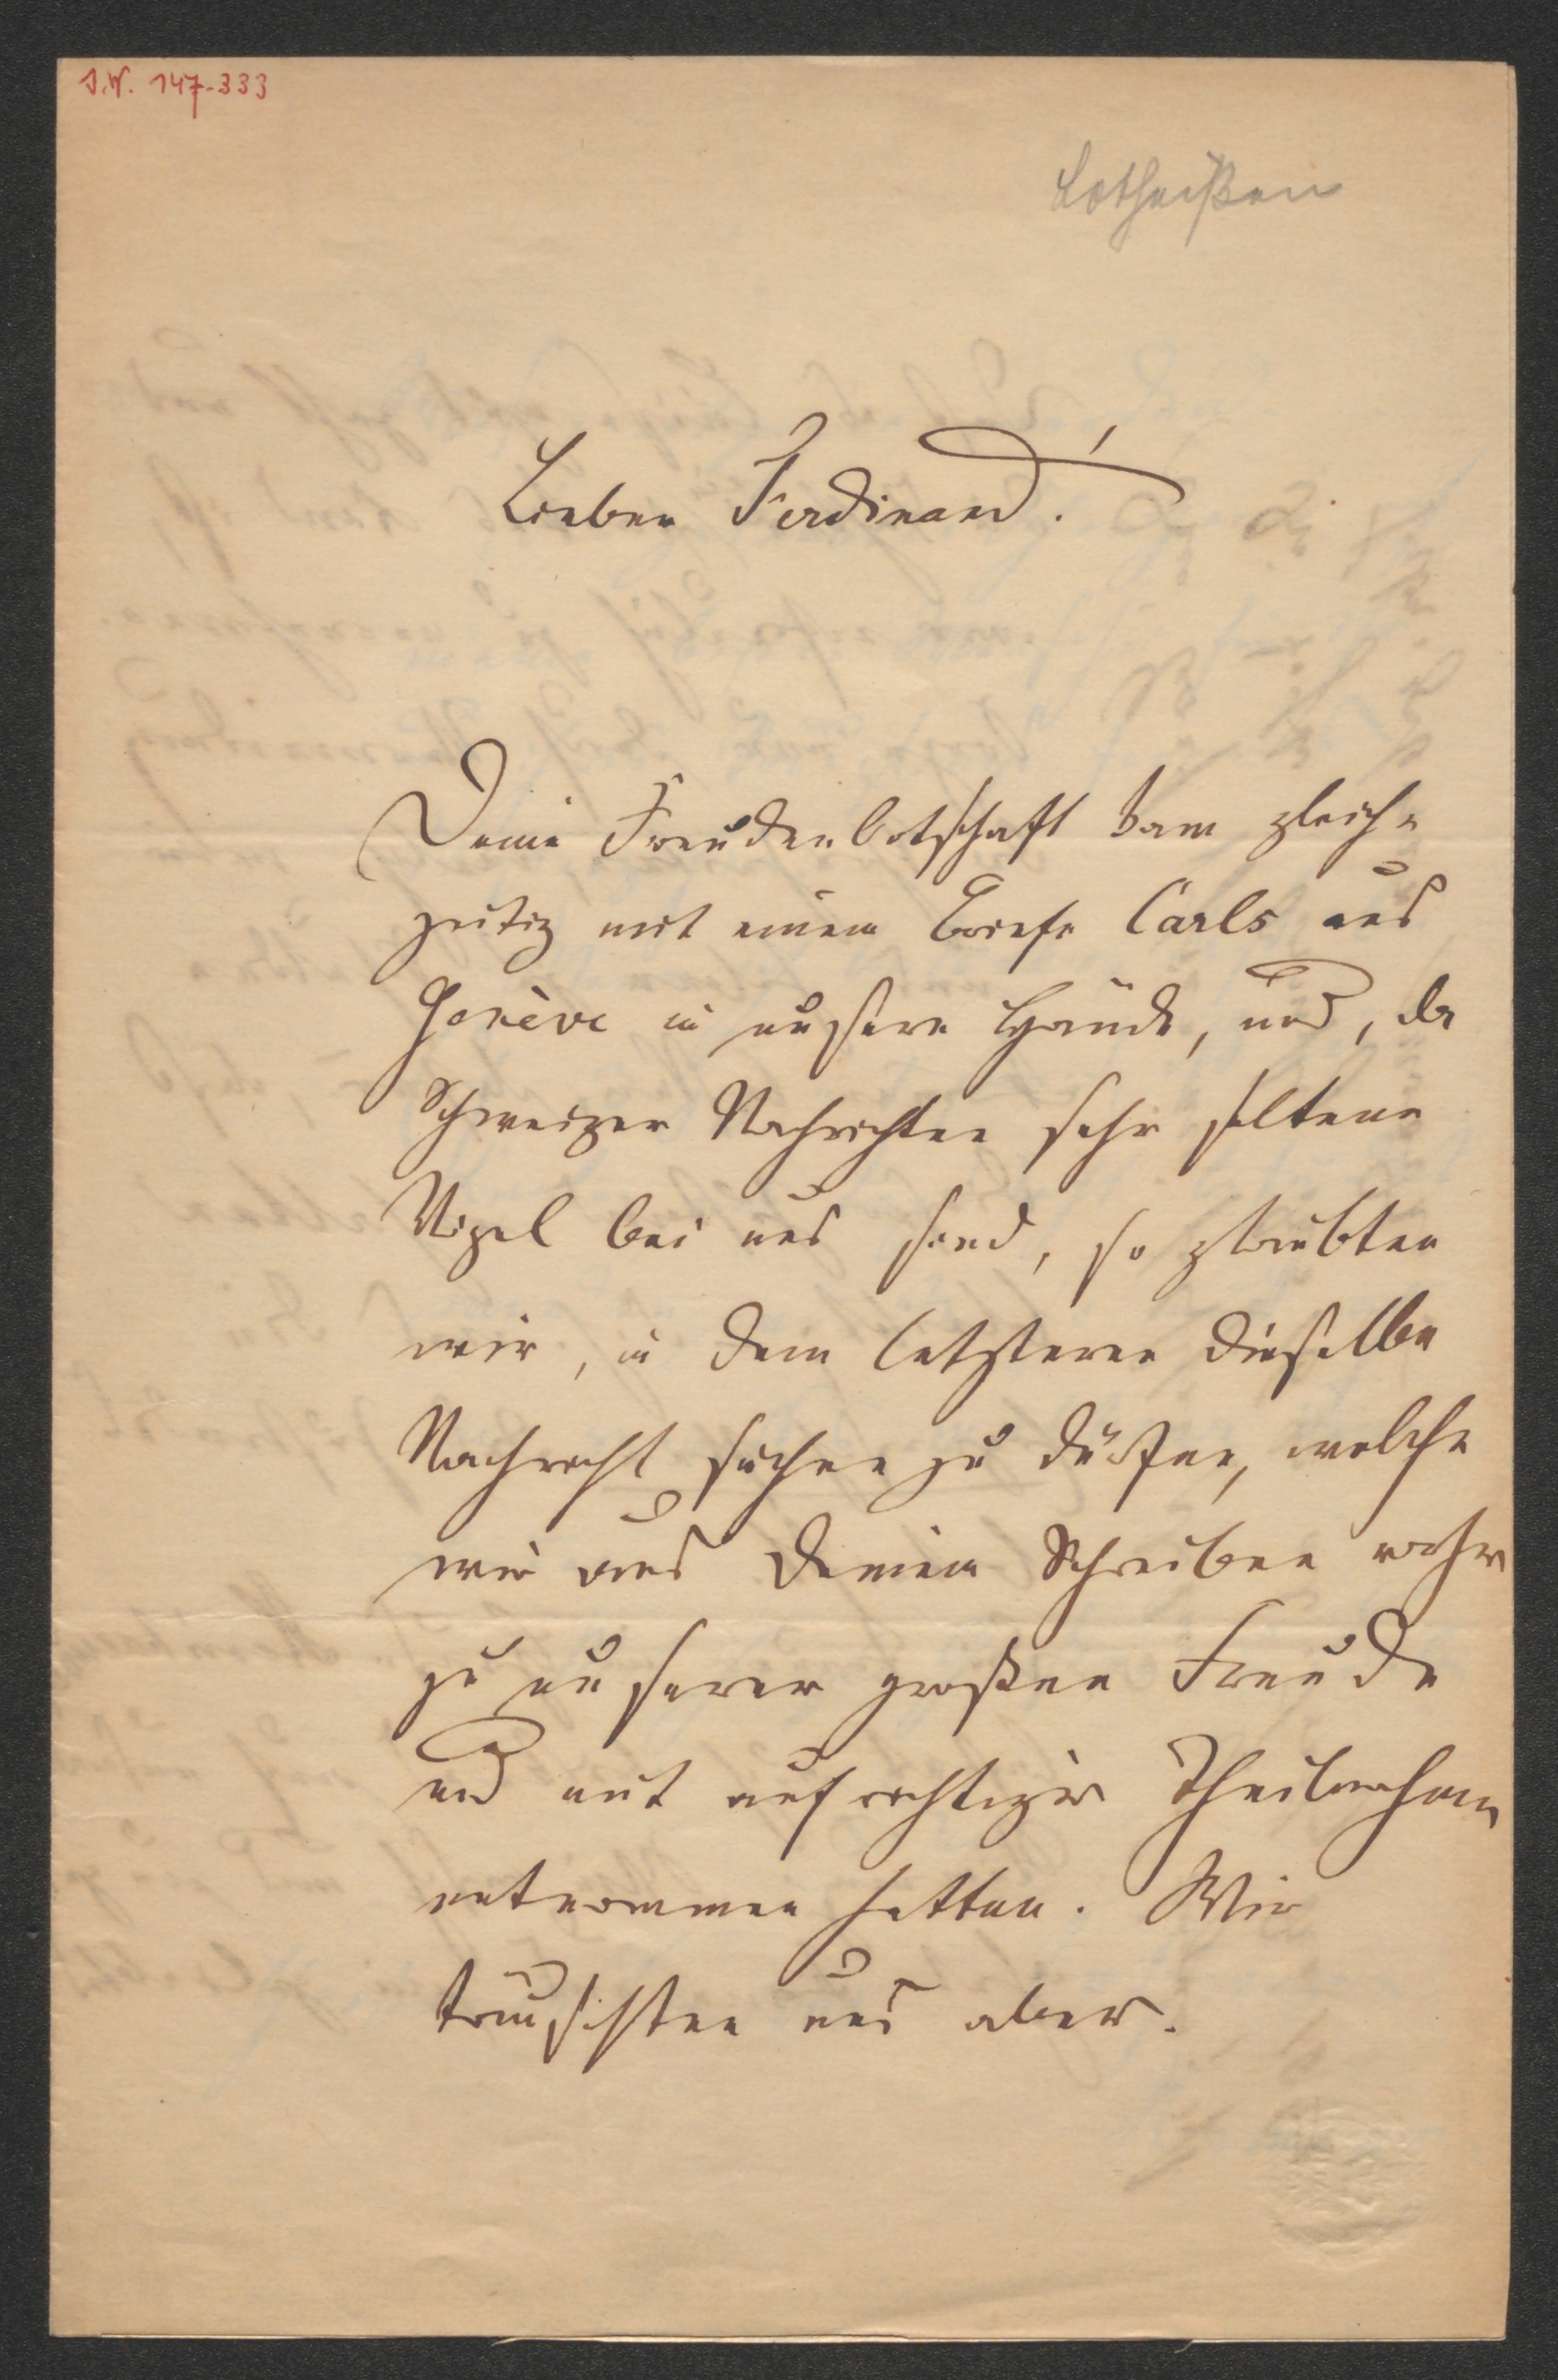 J.N. 147-333
Lotheißen
Lieber Ferdinand!
Deine Freudenbotschaft kam gleich-
zeitig mit einem Briefe Carls aus
Genève in unsere Hände, und, da
Schweizer Nachrichten sehr seltene
Vögel bei uns sind, so glaubten
wir, in dem letzteren dieselbe
Nachricht suchen zu dürfen, welche
wir aus Deinem Schreiben
zu unserer großen Freude
und mit aufrichtiger Theilnahme
entnommen hatten. Wir
täuschten uns aber.